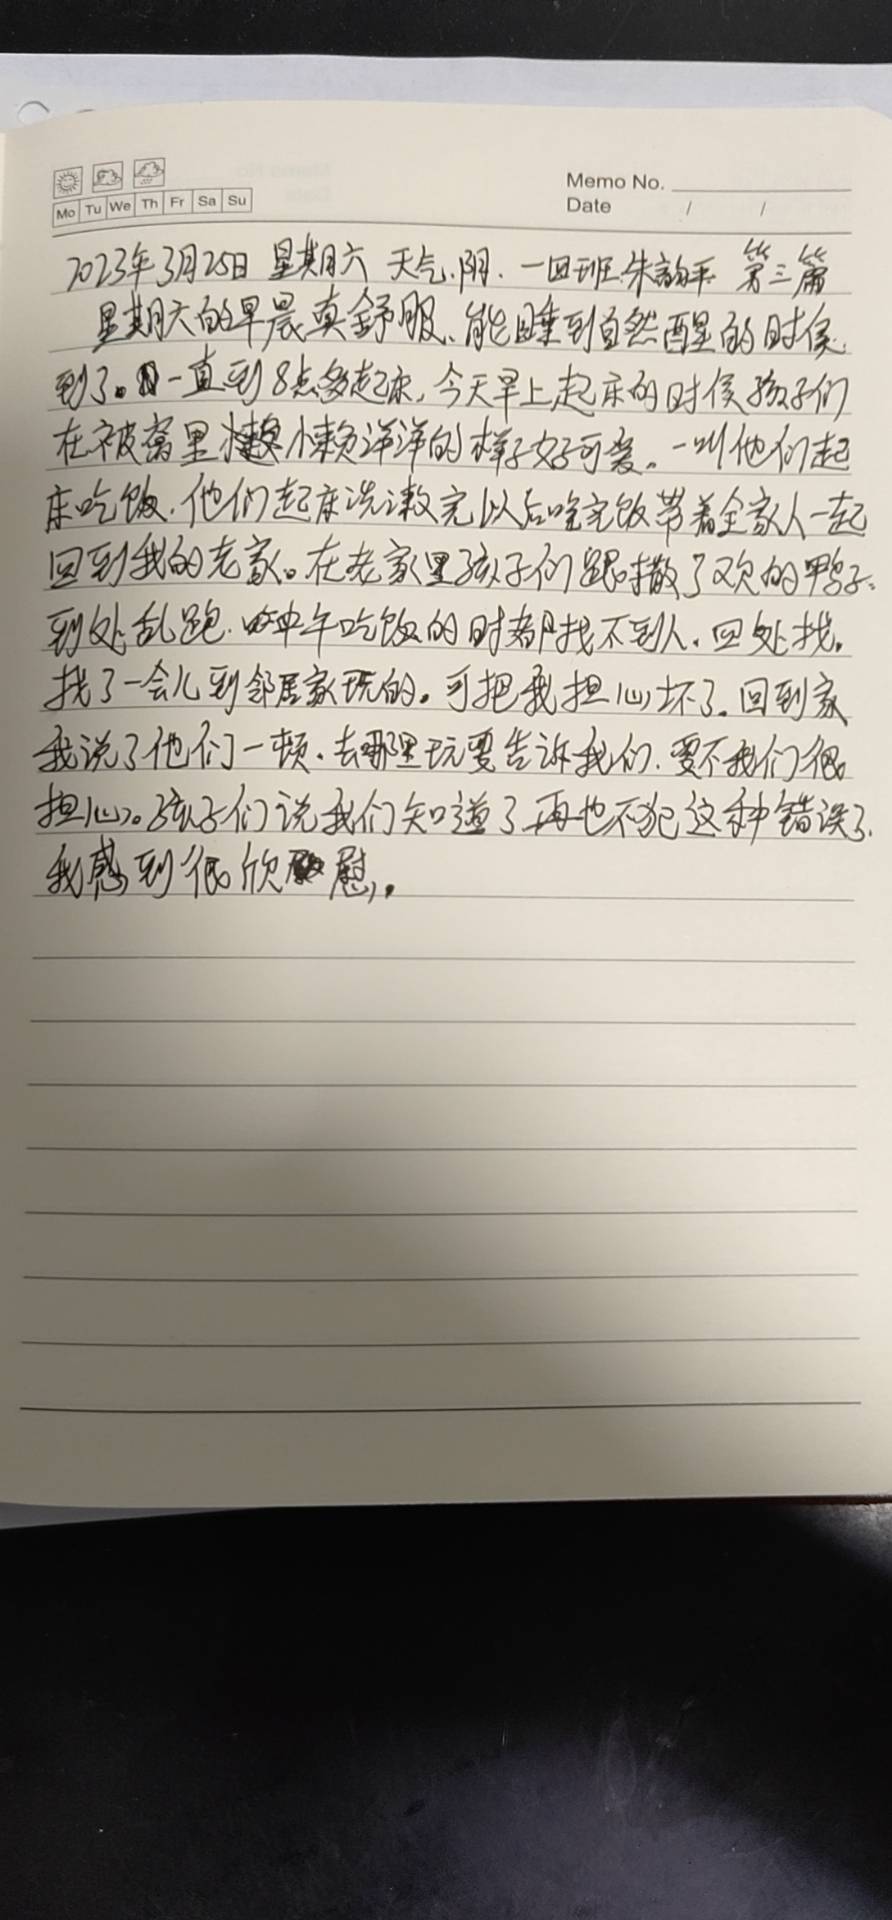 Memo No.
Mo Tu We Th Fr Sa Su
Date / /
2023年3月25日 星期六 天气.阴. 一四班.朱韵平 第三篇
星期六的早晨真舒服、能睡到自然醒的时候
到了。一直到8点多起床,今天早上起床的时候孩子们
在被窝里懒洋洋的样子好可爱。一叫他们起
床吃饭.他们起床洗漱完以后吃完饭带着全家人一起
回到我的老家。在老家里孩子们跟撒了欢的鸭子.
到处乱跑.中午吃饭的时都找不到人.四处找.
找了一会儿到邻居家玩的。可把我担心坏了.回到家
我说了他们一顿.去哪里玩要告诉我们.要不我们很
担心。孩子们说我们知道了再也不犯这种错误了.
我感到很欣慰。